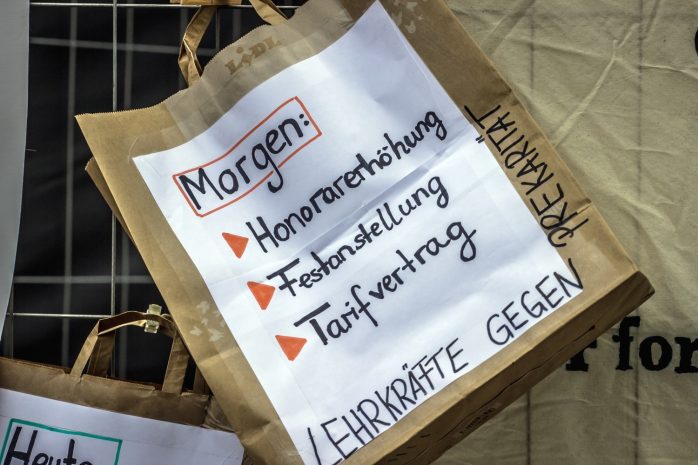 LIDL
Morgen:
Honorarerhöhung
Festanstellung
Tarifvertrag
LEHRKRÄFTE GEGEN
PREKARITÄT
Heute
for